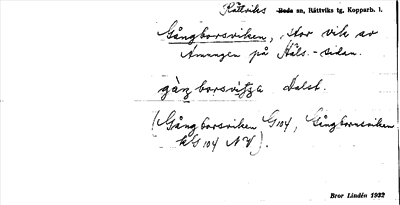 Rättviks Boda sn, Rättviks tg, Kopparb. l.
Gångborsviken, stor vik av
Amungen på Häls.-sidan.
gàŋborsviʃa Dalst.
(Gångborsviken G 104, Gingborsviken
kG 104 NV).
Bror Lindén 1932